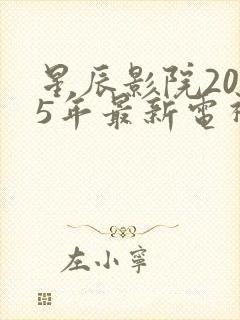 星辰影院20
5年最新電
左小寧